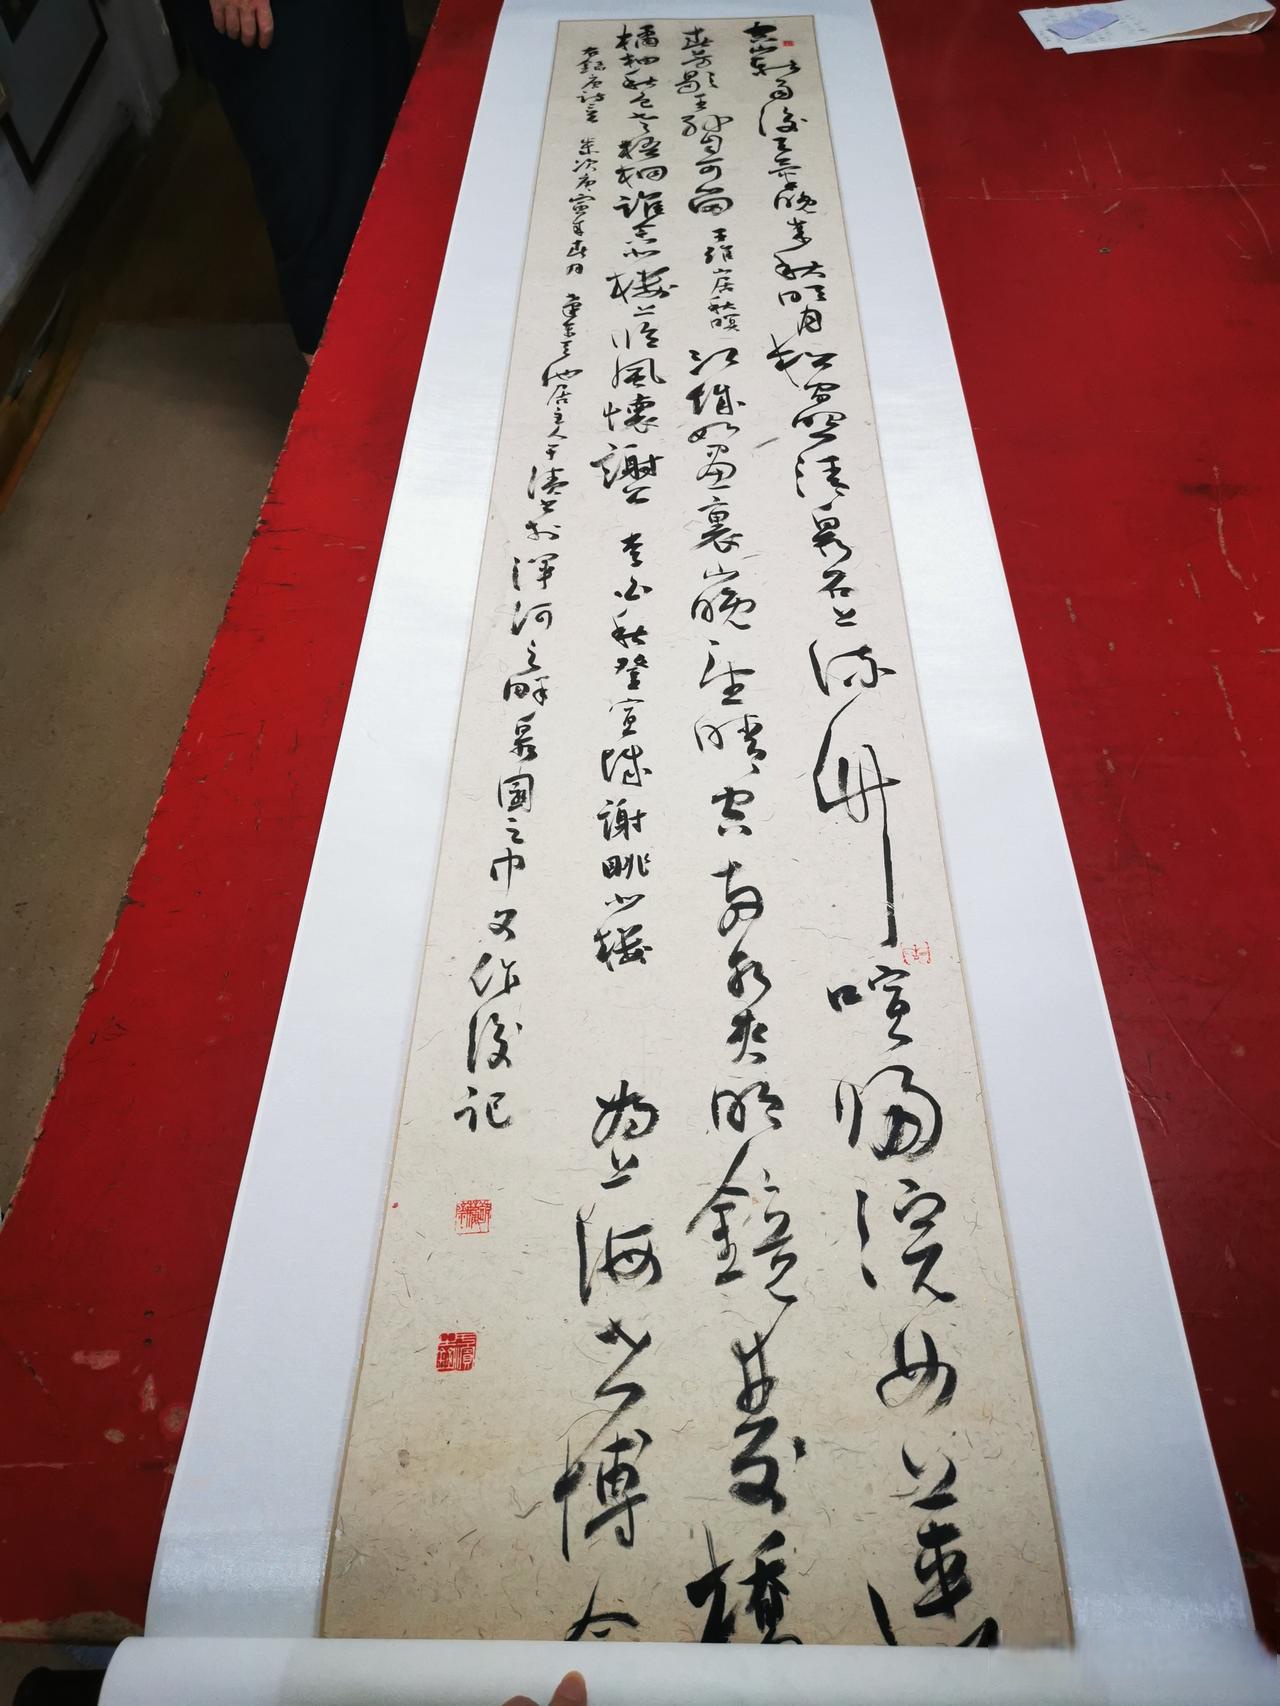 空山新雨后天气晚来秋明月松間照清泉石上流竹喧歸浣女蓮
春芳歇王孫自可留 王維山居秋暝 江城如畫裏山晚望晴空兩水夾明鏡雙橋
橘柚秋色老梧桐誰念北樓上臨風懷謝公 李白秋登宣城謝朓北樓 為上海世博會
右錄唐詩二首 歲次庚寅年春月 池居主人 書於渾河之畔泉園之中又作後記